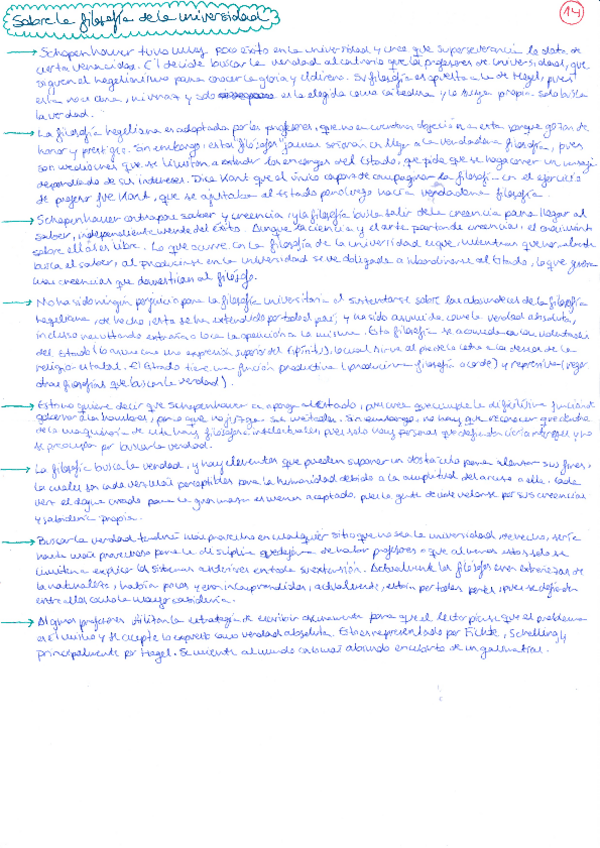 Sobre la filosofía de la universidad
14
→ Schopenhauer tuvo muy poco éxito en la universidad y cree que su perseverancia lo dota de
cierta veracidad. Él decide buscar la verdad al contrario que los profesores de universidad, que
siguen el hegelianismo para conocer la gloria y el dinero. Su filosofía es opuesta a la de Hegel, pues
esta no es clara, ni veraz y solo es la elegida como cátedra y la suya propia solo busca
la verdad.
→ La filosofía hegeliana es adoptada por los profesores, que no encuentran objeción a esta porque gozan de
honor y prestigio. Sin embargo, estos "filósofos" jamás soñarán en llegar a la verdadera filosofía, pues
son mediocres que se limitan a los encargos del Estado, que pide que se haga como un consejo
dependiendo de sus intereses. Dice Kant que el único capaz de compaginar la filosofía con el ejercicio
de profesor fue Kant, que se ajustaba al Estado pero luego hacía verdadera filosofía.
→ Schopenhauer contrapone saber y creencia, y la filosofía busca salir de la creencia para llegar al
saber, independientemente del éxito. Aunque la ciencia y el arte parten de creencias, el
sobre ellos es libre. Lo que ocurre con la filosofía de la universidad es que, mientras que
busca el saber, al producirse en la universidad se ve obligada a subordinarse al Estado, lo que genera
unas creencias que desvestían al filósofo.
→ No ha sido ningún perjuicio para la filosofía universitaria el sustentarse sobre las de la filosofía
hegeliana, de hecho, esta se ha extendido por todo el país, y ha sido asumida como la verdad absoluta,
incluso resultando extraña o loca la oposición a la misma. Esta filosofía se acomoda en las voluntades
del Estado (lo asume como expresión superior del Espíritu), lo cual sirve al
religión estatal. El Estado tiene una función productiva (producir una filosofía acorde) y represiva (negar
otras filosofías que buscan la verdad).
→ Esto no quiere decir que Schopenhauer se oponga al Estado, pues cree que cumple la dificilísima función de
gobernar a los hombres, por lo que no juzga sus métodos. Sin embargo, no hay que reconocer que dentro
de la maquinaria de este hay filósofos intelectuales, pues solo hay personas que defienden ciertos intereses y no
se preocupan por buscar la verdad.
→ La filosofía busca la verdad, y hay elementos que pueden suponer un obstáculo para alcanzar sus fines,
los cuales son cada vez más perceptibles para la humanidad debido a la amplitud del acceso a ella. Cada
vez el dogma creado para la gran masa es menos aceptado, pues la gente decide valerse por sus creencias
y sabiduría propia.
→ Buscar la verdad tendría más provecho en cualquier sitio que no sea la universidad, de hecho, sería
hasta más provechoso para la disciplina que dejara de haber profesores o que al menos estos solo se
limitaran a explicar los sistemas anteriores en toda su extensión. Actualmente los filósofos eran extrañezas de
la naturaleza, había pocos y eran incomprendidos, actualmente, están por todas partes, pues se dejan
entrellos como la mayor sabiduría.
→ Algunos profesores utilizan la estrategia de escribir oscuramente para que el lector piense que el problema
es él mismo y se acepte lo expuesto como verdad absoluta. Esto es representado por Fichte, Schelling y
principalmente por Hegel. Se miente al mundo